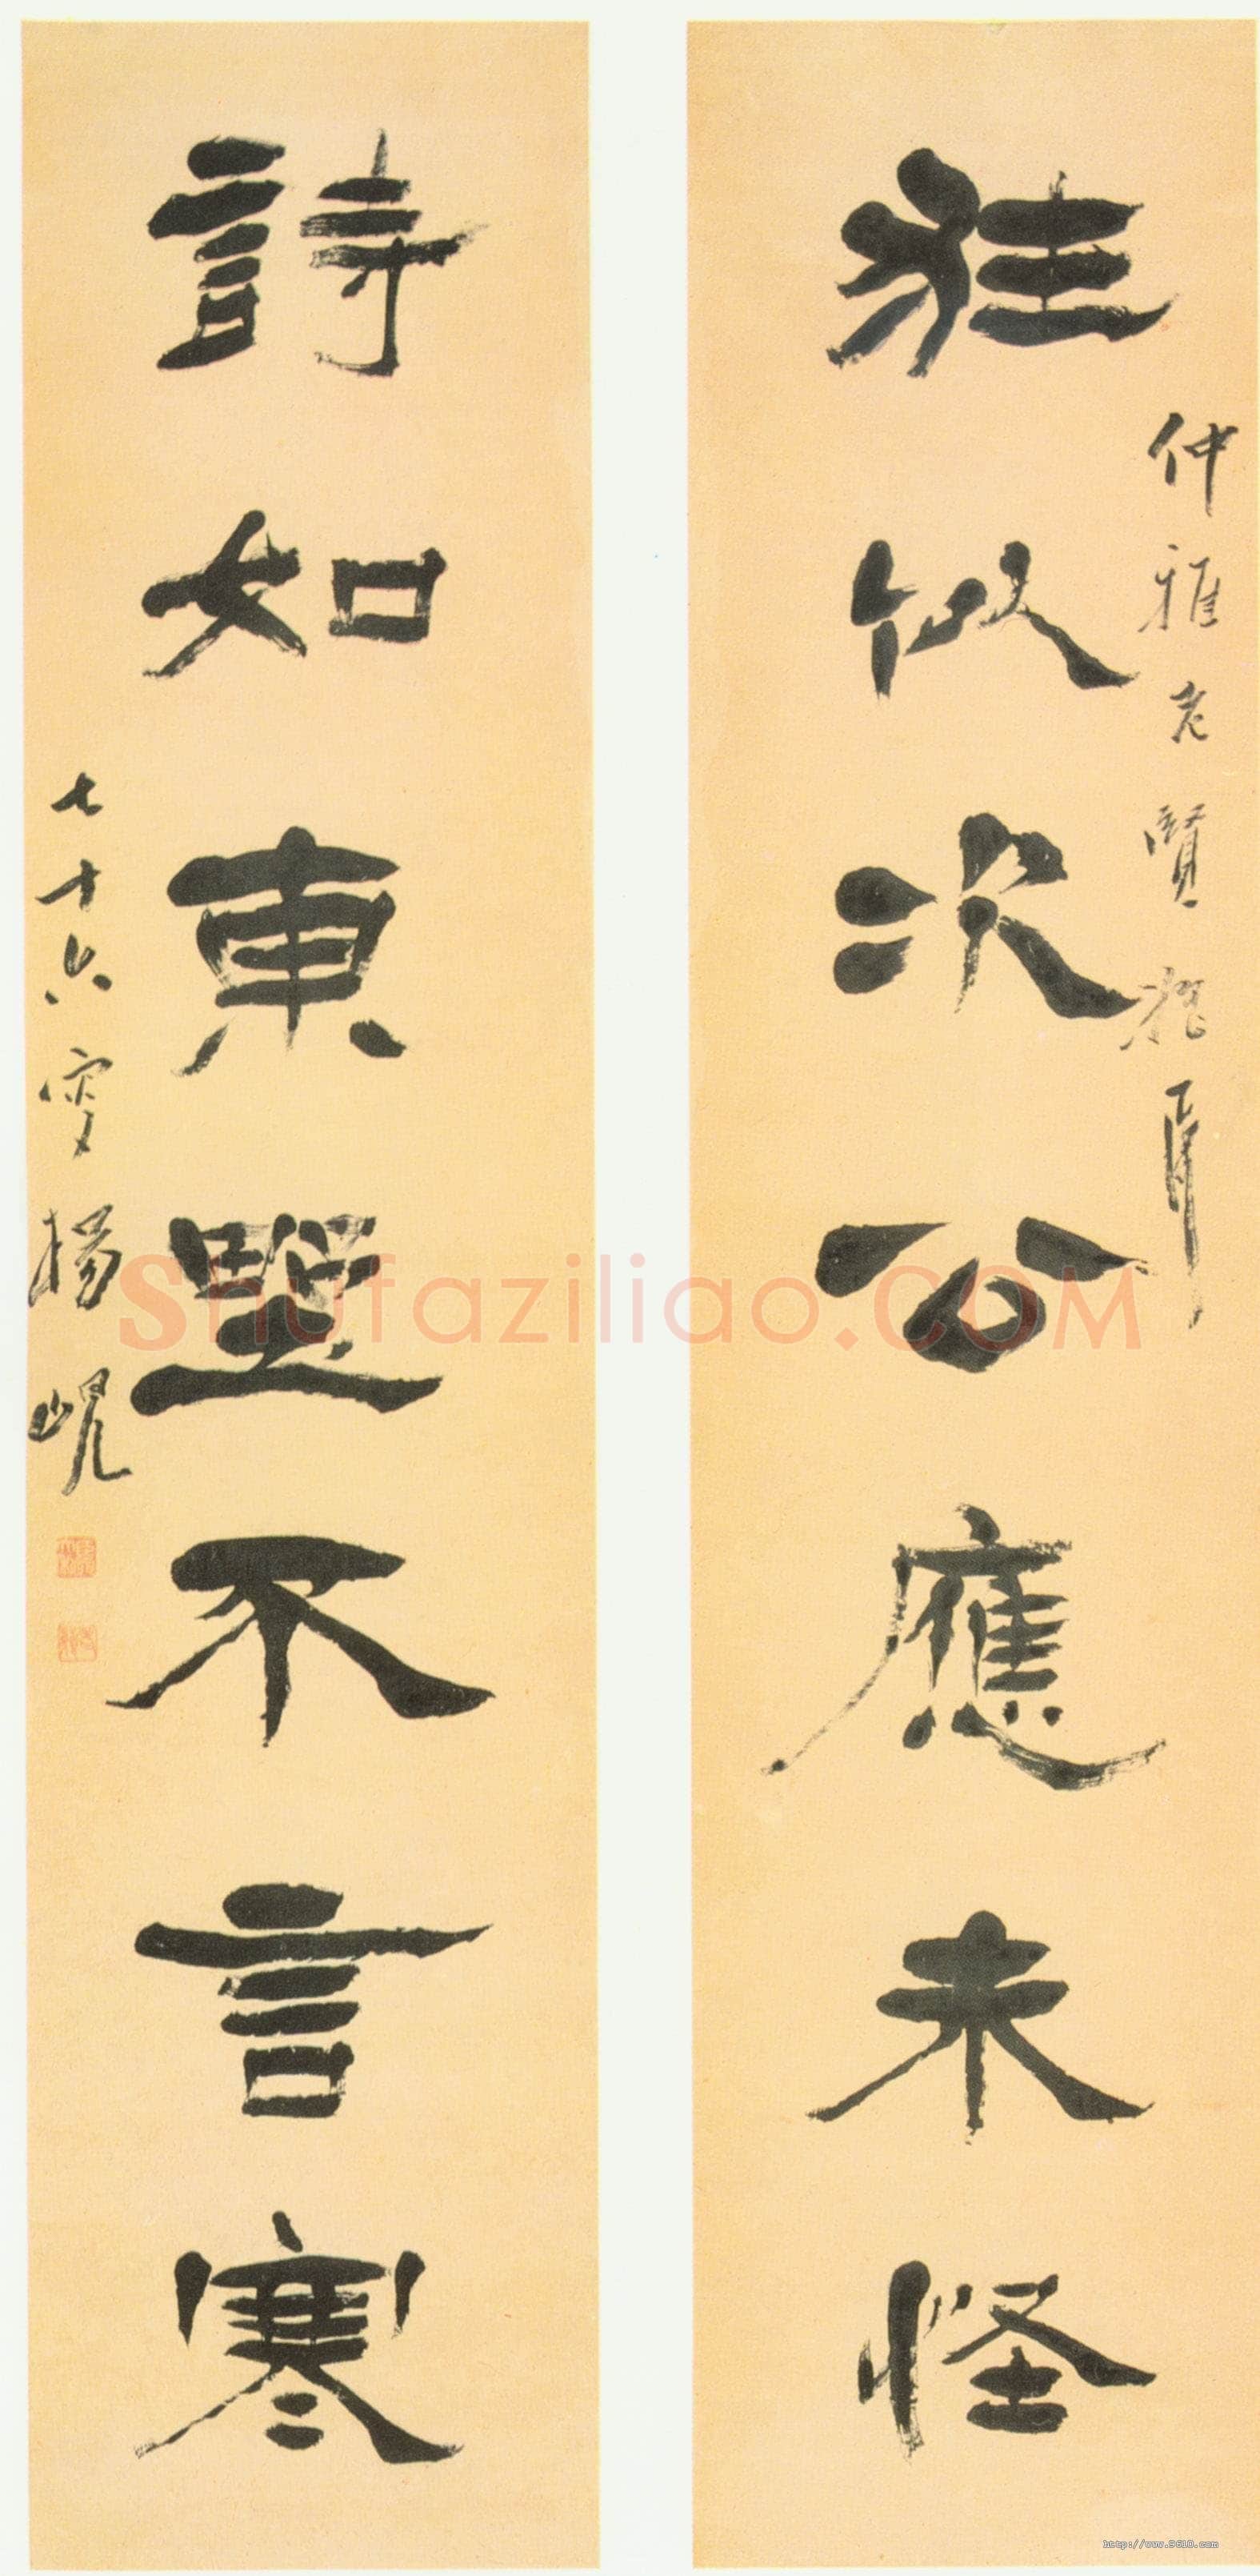 狂似次公應未怪
仲雅老賢姪屬
詩如東墅不言寒
七十六叟楊峴
Shufaziliao.COM
http://www.9610.com